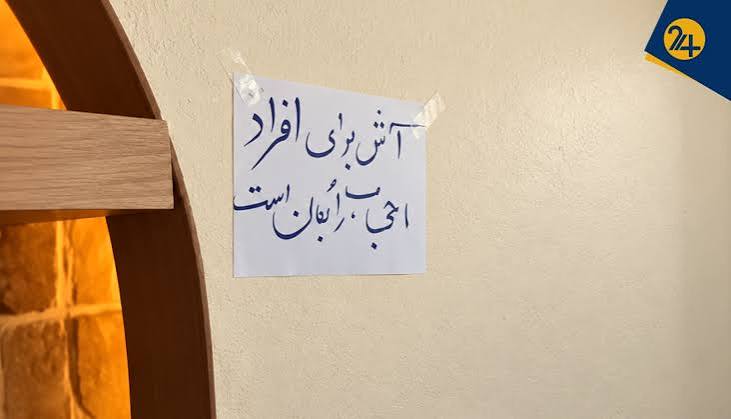 آش برای افراد
احجاب، رایگان است
24